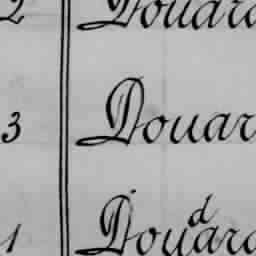 2 Douard
3 Douar
1 Douard